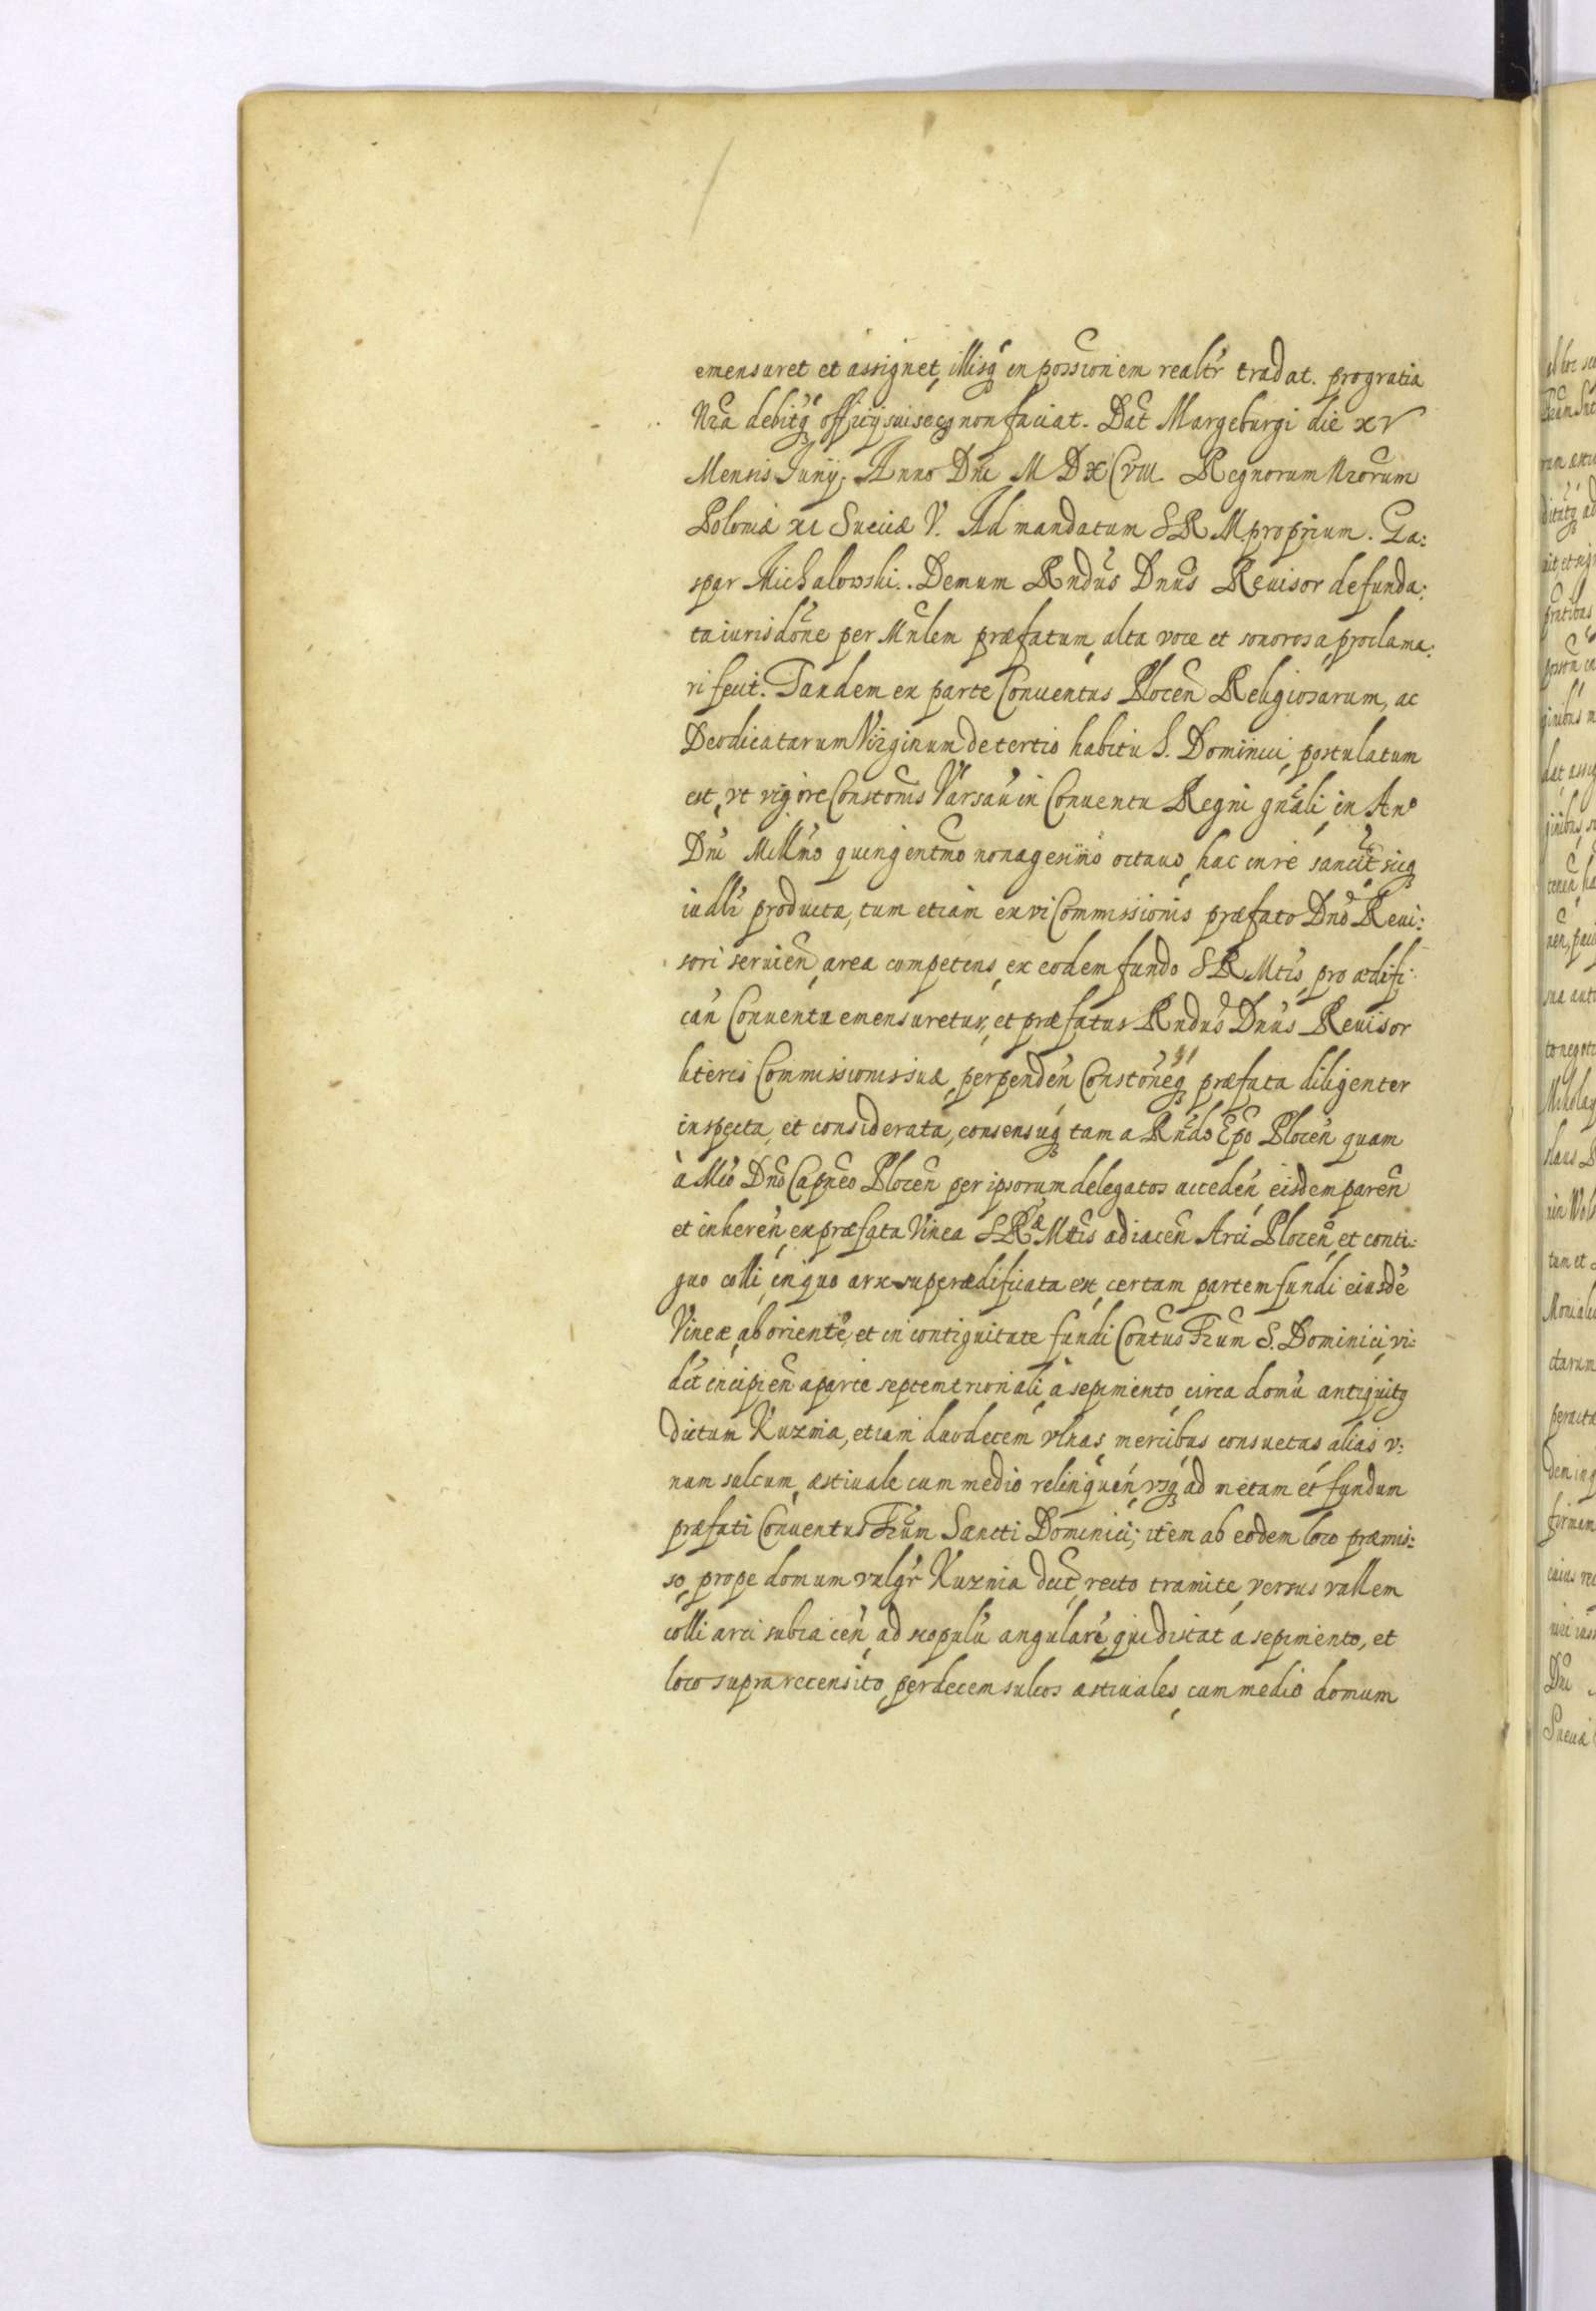 emensuret et assignet, illisq; in possionem realtr tradat. pro gratia
Nra debitoq; officij sui secq; non faciat. Dat Margeburgi die XV
Mensis Junij, Anno Dni M D XCVIII. Regnorum Nrorum
Poloniæ XI Sueciæ V. Ad mandatum S R M proprium. Ga:
spar Michalowski. Demum Rndus Dnus Reuisor de funda:
ta iurisdone per Mnlem præfatum, alta voce et sonorosa, proclama:
ri fecit. Tandem ex parte Conuentus Plocen Religiosarum, ac
Deodicatarum Virginum de tertio habitu S. Dominici, postulatum
est, vt vigore Constonis Varsau in Conuentu Regni gnali, in Ano
Dni Millmo quingentmo nonagesimo octauo, hac in re sancit sicq;
iudlr productæ, tum etiam ex vi Commissionis præfato Dno Reui:
sori seruien, area competens, ex eodem fundo S R Mtis, pro ædifi
can Conuentu emensuretur, et præfatus Rndus Dnus Reuisor
literis Commissionis suæ, perpenden Constoneq; præfata diligenter
inspecta, et considerata, consensuq; tam a Rndo Epo Plocen quam
à Mco Dno Capneo Plocen per ipsorum delegatos acceden, eisdem paren
et inheren, ex præfata Vinea S Ræ Mtis adiacen Arci Plocen, et conti:
guo colli, in quo arx superædificata est, certam partem fundi eiusde
Vineæ, ab oriente, et in contiguitate fundi Contus Frum S. Dominici, vi:
dlt incipien a parte septemtrionali, a sepimento, circa domu antiquitq;
dictam Kuznia, etiam duodecem vlnas, mercibus consuetas alias v:
num sulcum, æstiuale cum medio relinquen, vsq; ad metam et fundum
præfati Conuentus Frum Sancti Dominici; item ab eodem loco præmis:
so, prope domum vulgr Kuznia dict, recto tramite, versus vallem
colli arci subiacen, ad scopulu angulare, qui distat a sepimento, et
loco supra recensito, per decem sulcos æstiuales, cum medio domum